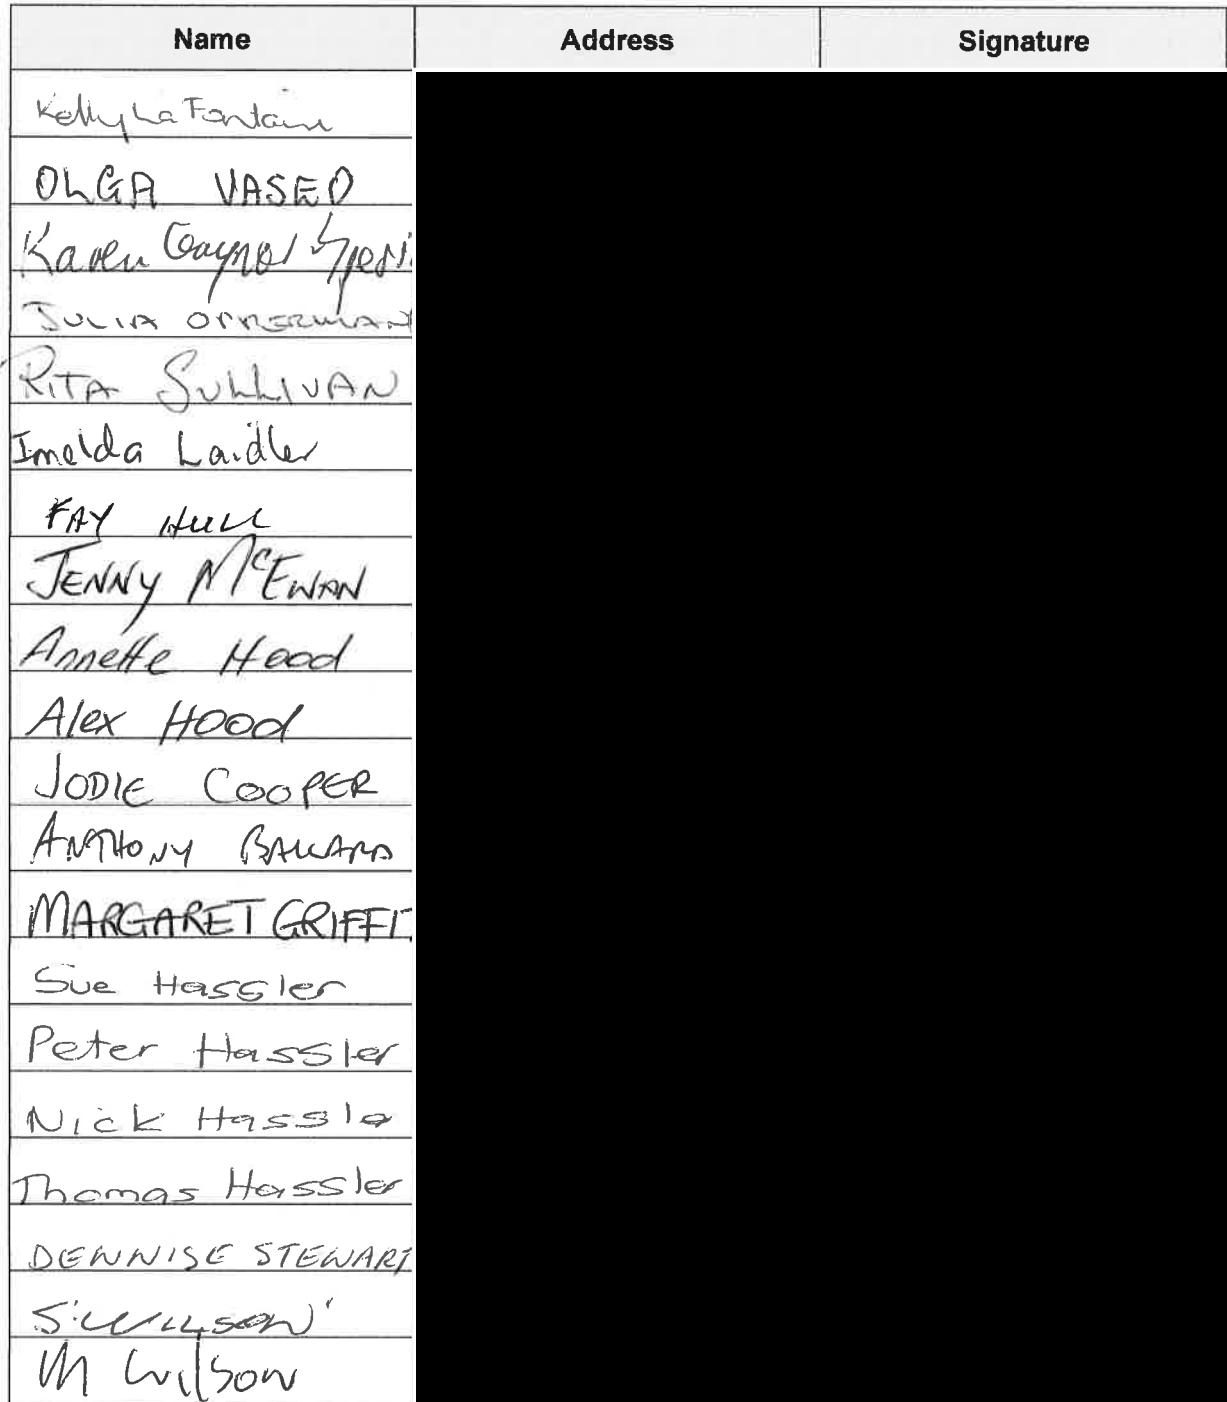 Name Address Signature
Kelly La Fontaine
OLGA VASEO
Karen Gaynor
JULIA OPPERMAN
RITA SULLIVAN
Imelda Laidler
FAY HULL
JENNY McEWAN
Annette Hood
Alex Hood
JODIE COOPER
ANTHONY BALLARD
MARGARET GRIFFIT
Sue Hassler
Peter Hassler
Nick Hassle
Thomas Hassler
DENNISE STEWART
S. WILSON
M Wilson